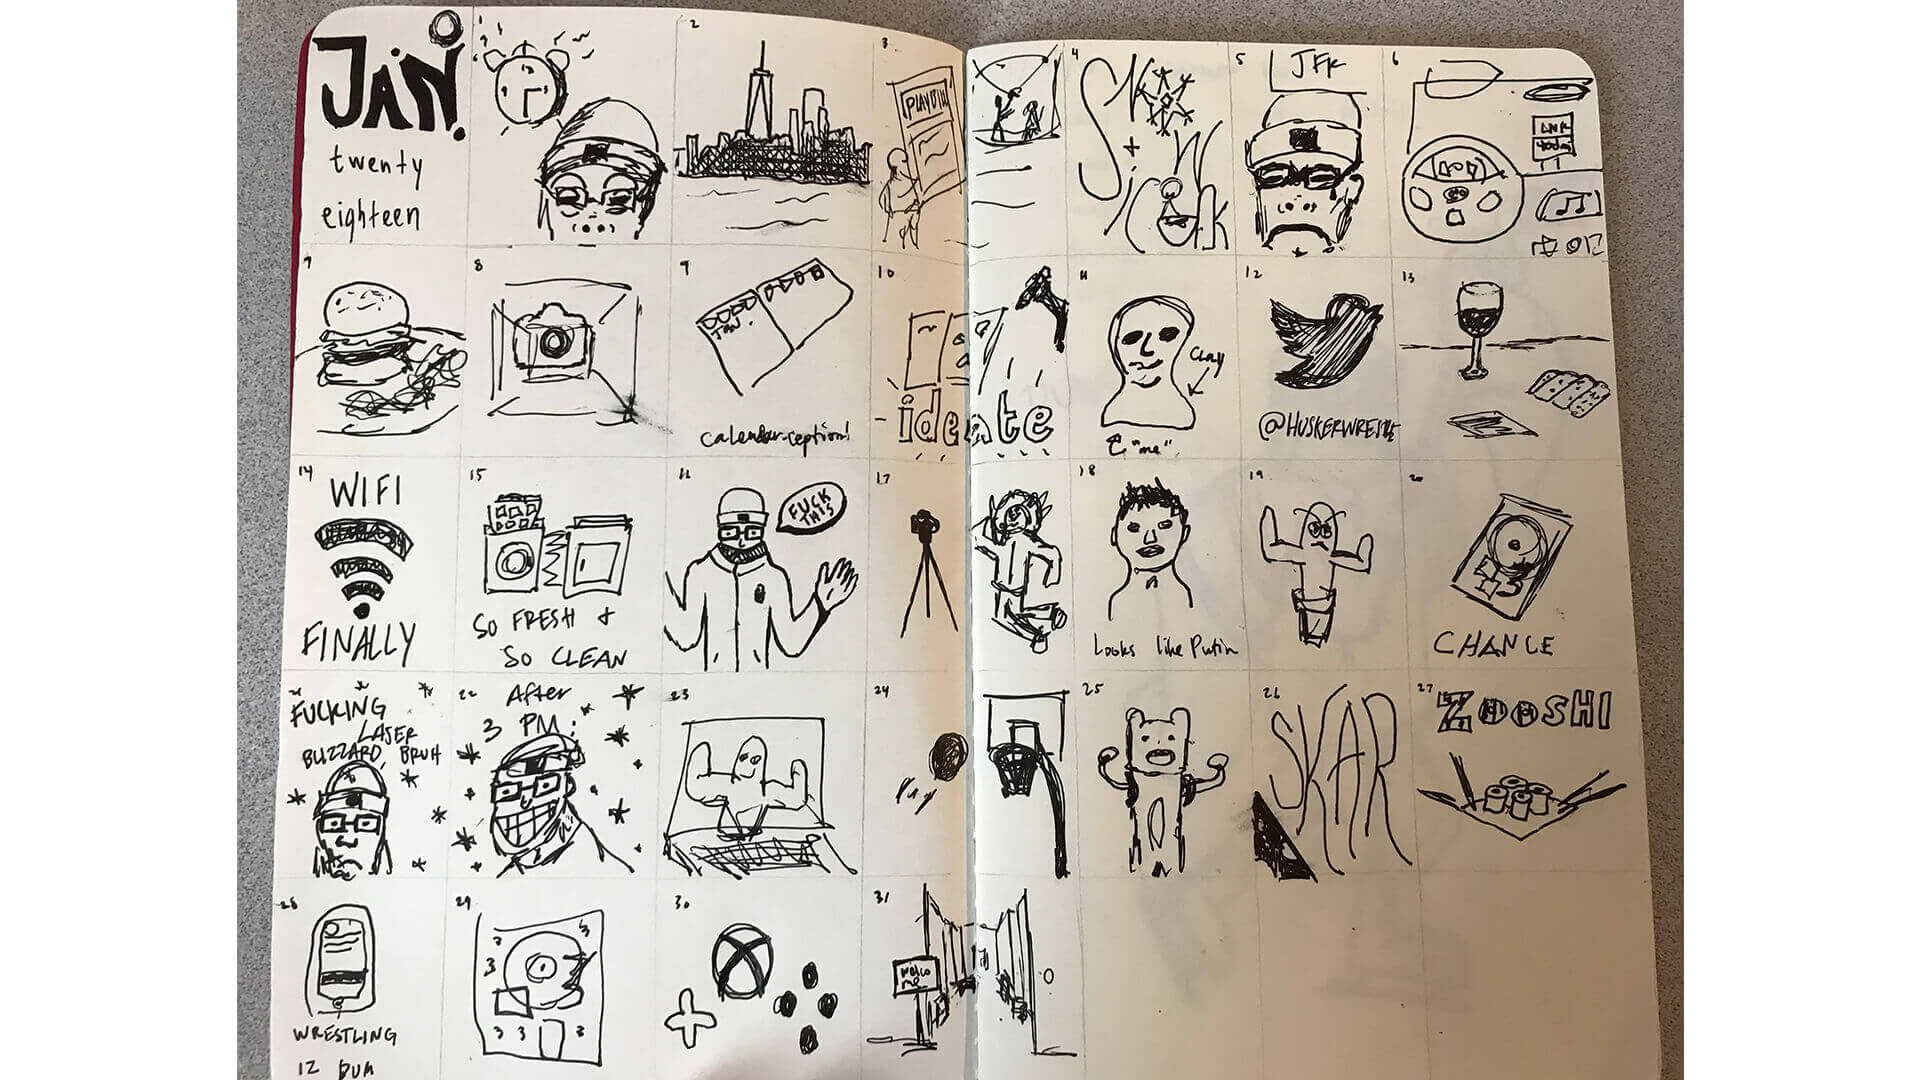 JAN.
twenty
eighteen
1
2
3
PLAYBILL
4
SICK
+
SNOW
5
JFK
6
LNK
7
8
9
JAN.
calendar-ception!
10
ideate
11
clay
"me"
12
@HUSKERWRESTLE
13
14
WIFI
FINALLY
15
SO FRESH +
SO CLEAN
16
FUCK
THIS
17
18
Looks like Putin
19
20
3
CHANCE
21
FUCKING
LASER
BLIZZARD, BRUH
22
After
3 PM:
23
24
25
26
SKAR
27
ZOOSHI
28
WRESTLING
12 DUAL
29
3
3
3
3
3
30
31
welco
me